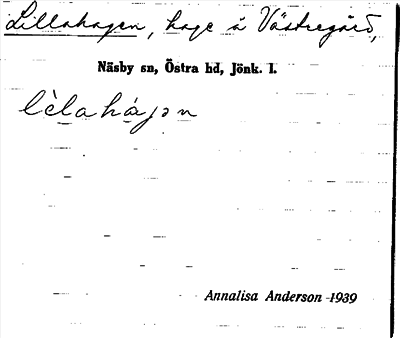 Lillahagen, hage å Västregård,
Näsby sn, Östra hd, Jönk. l.
lèlahágən
Annalisa Anderson 1939